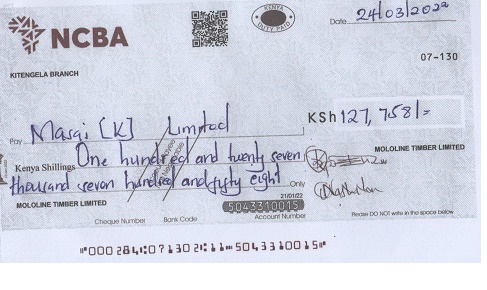 NCBA
KENYA
DUTY PAID
Date 24/03/2022
07-130
KITENGELA BRANCH
Pay Masai [K] Limited
KSh 127,758/=
Kenya Shillings One hundred and twenty seven
MOLOLINE TIMBER LIMITED
thousand seven hundred and fifty eight Only
MOLOLINE TIMBER LIMITED
21/01/22
5043310015
Cheque Number Bank Code Account Number
Please DO NOT write in the space below
"000284 07130 2 11 5043310015"